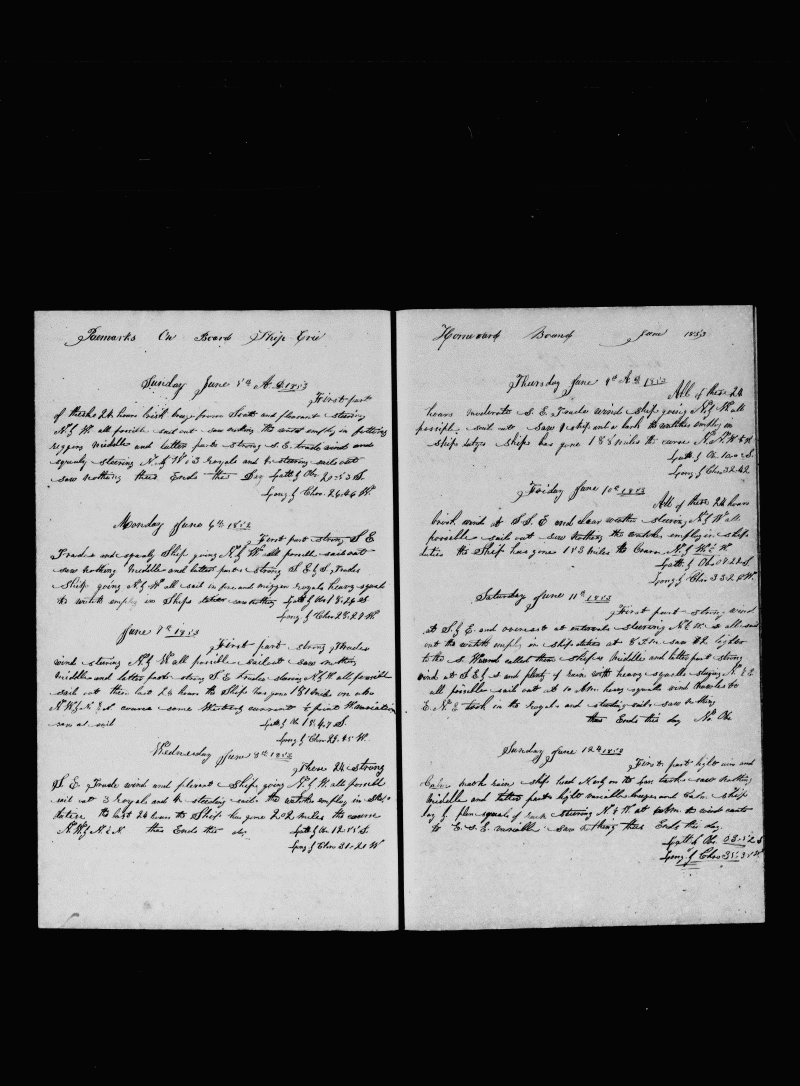 Remarks On Board Ship Erie
Sunday June 5th A.D. 1853
First part
of these 24 hours brisk from South and plesent steering
N. by W. all possible sail out saw nothing the watch employ in
rigging Middle and latter parts strong S.E. trade wind and
squaly steering N. by W. 3 royals and 4 steering sails out
saw nothing thus Ends the Day Latt by Ob. 20=53 S.
Long by Chro. 26:46 W.
Monday June 6th 1853
First part strong S E
Trades and squaly Ship going N. by W. all possible sail out
saw nothing Middle and latter parts strong S.E. by S. Trades
Ship going N. by W. all sail in fore and mizzen royals heavy squals
the watch employ in Ships saw nothing Latt by Ob 18:26 S
Long by Chro 28:24 W.
June 7th 1853
First part strong Trades
wind steering N. by W. all possible sail out saw nothing
Middle and latter parts strong S E Trades steering N. by W. all possible
sail out these last 24 hours the Ship has gone 181 miles on a
N.W. course some Westerly current
saw no sail Latt by Ob 15.47 S.
Long by Chro 29.45 W.
Wednesday June 8th 1853
These 24 strong
S. E. Trade wind and plesent Ship going N. by W. all possible
sail out 3 royals and 4 steading sails the watch employ in Ship
duties the last 24 hours the Ship has gone 202 miles the course
N.W. by N. thus Ends this day. Latt by Ob. 12=55 S.
Long by Chro 31=21 W
Homeward Bound June 1853
Thursday June 9th A.D. 1853
All of these 24
hours moderate S. E Trade wind Ship going N. by W. all
possible sail out saw 1 ship and a bark the watches employ in
ships duties ships has gone 188 miles the course
Latt by Ob. 10=0 S.
Long by Chro 32:42
Friday June 10th 1853
All of these 24 hours
brisk wind at S. S. E and clear weather steering N. by W. all
possible sail out saw nothing the watches employ in ships
duties the Ship has gone 183 miles the Course N. by W. W.
Latt by Ob 07:22 S
Long by Chro 33:29 W.
Saturday June 11th 1853
First part strong wind
at S. by E. and overcast at intervals steering N. all sail
out the watch employ in ships duties at 8 P.M. saw 2 lights
to the S. Ward called them ships Middle and latter part strong
wind at S.E. by S and plenty of rain with heavy squalls steering N.
all possible sail out at 10 A.M. heavy squalls wind to
E. N. E took in the royals and steading sails saw nothing
thus Ends this day No Ob.
Sunday June 12th 1853
First part light airs and
Calm much rain ship head N. saw nothing
Middle and latter parts light variable and Calm ship
squals of rain steering N. by W. at A.M. wind
to E. S. E. variable saw nothing thus Ends this day.
Latt by Ob. 05=52 S
Long by Chro 35:31 W